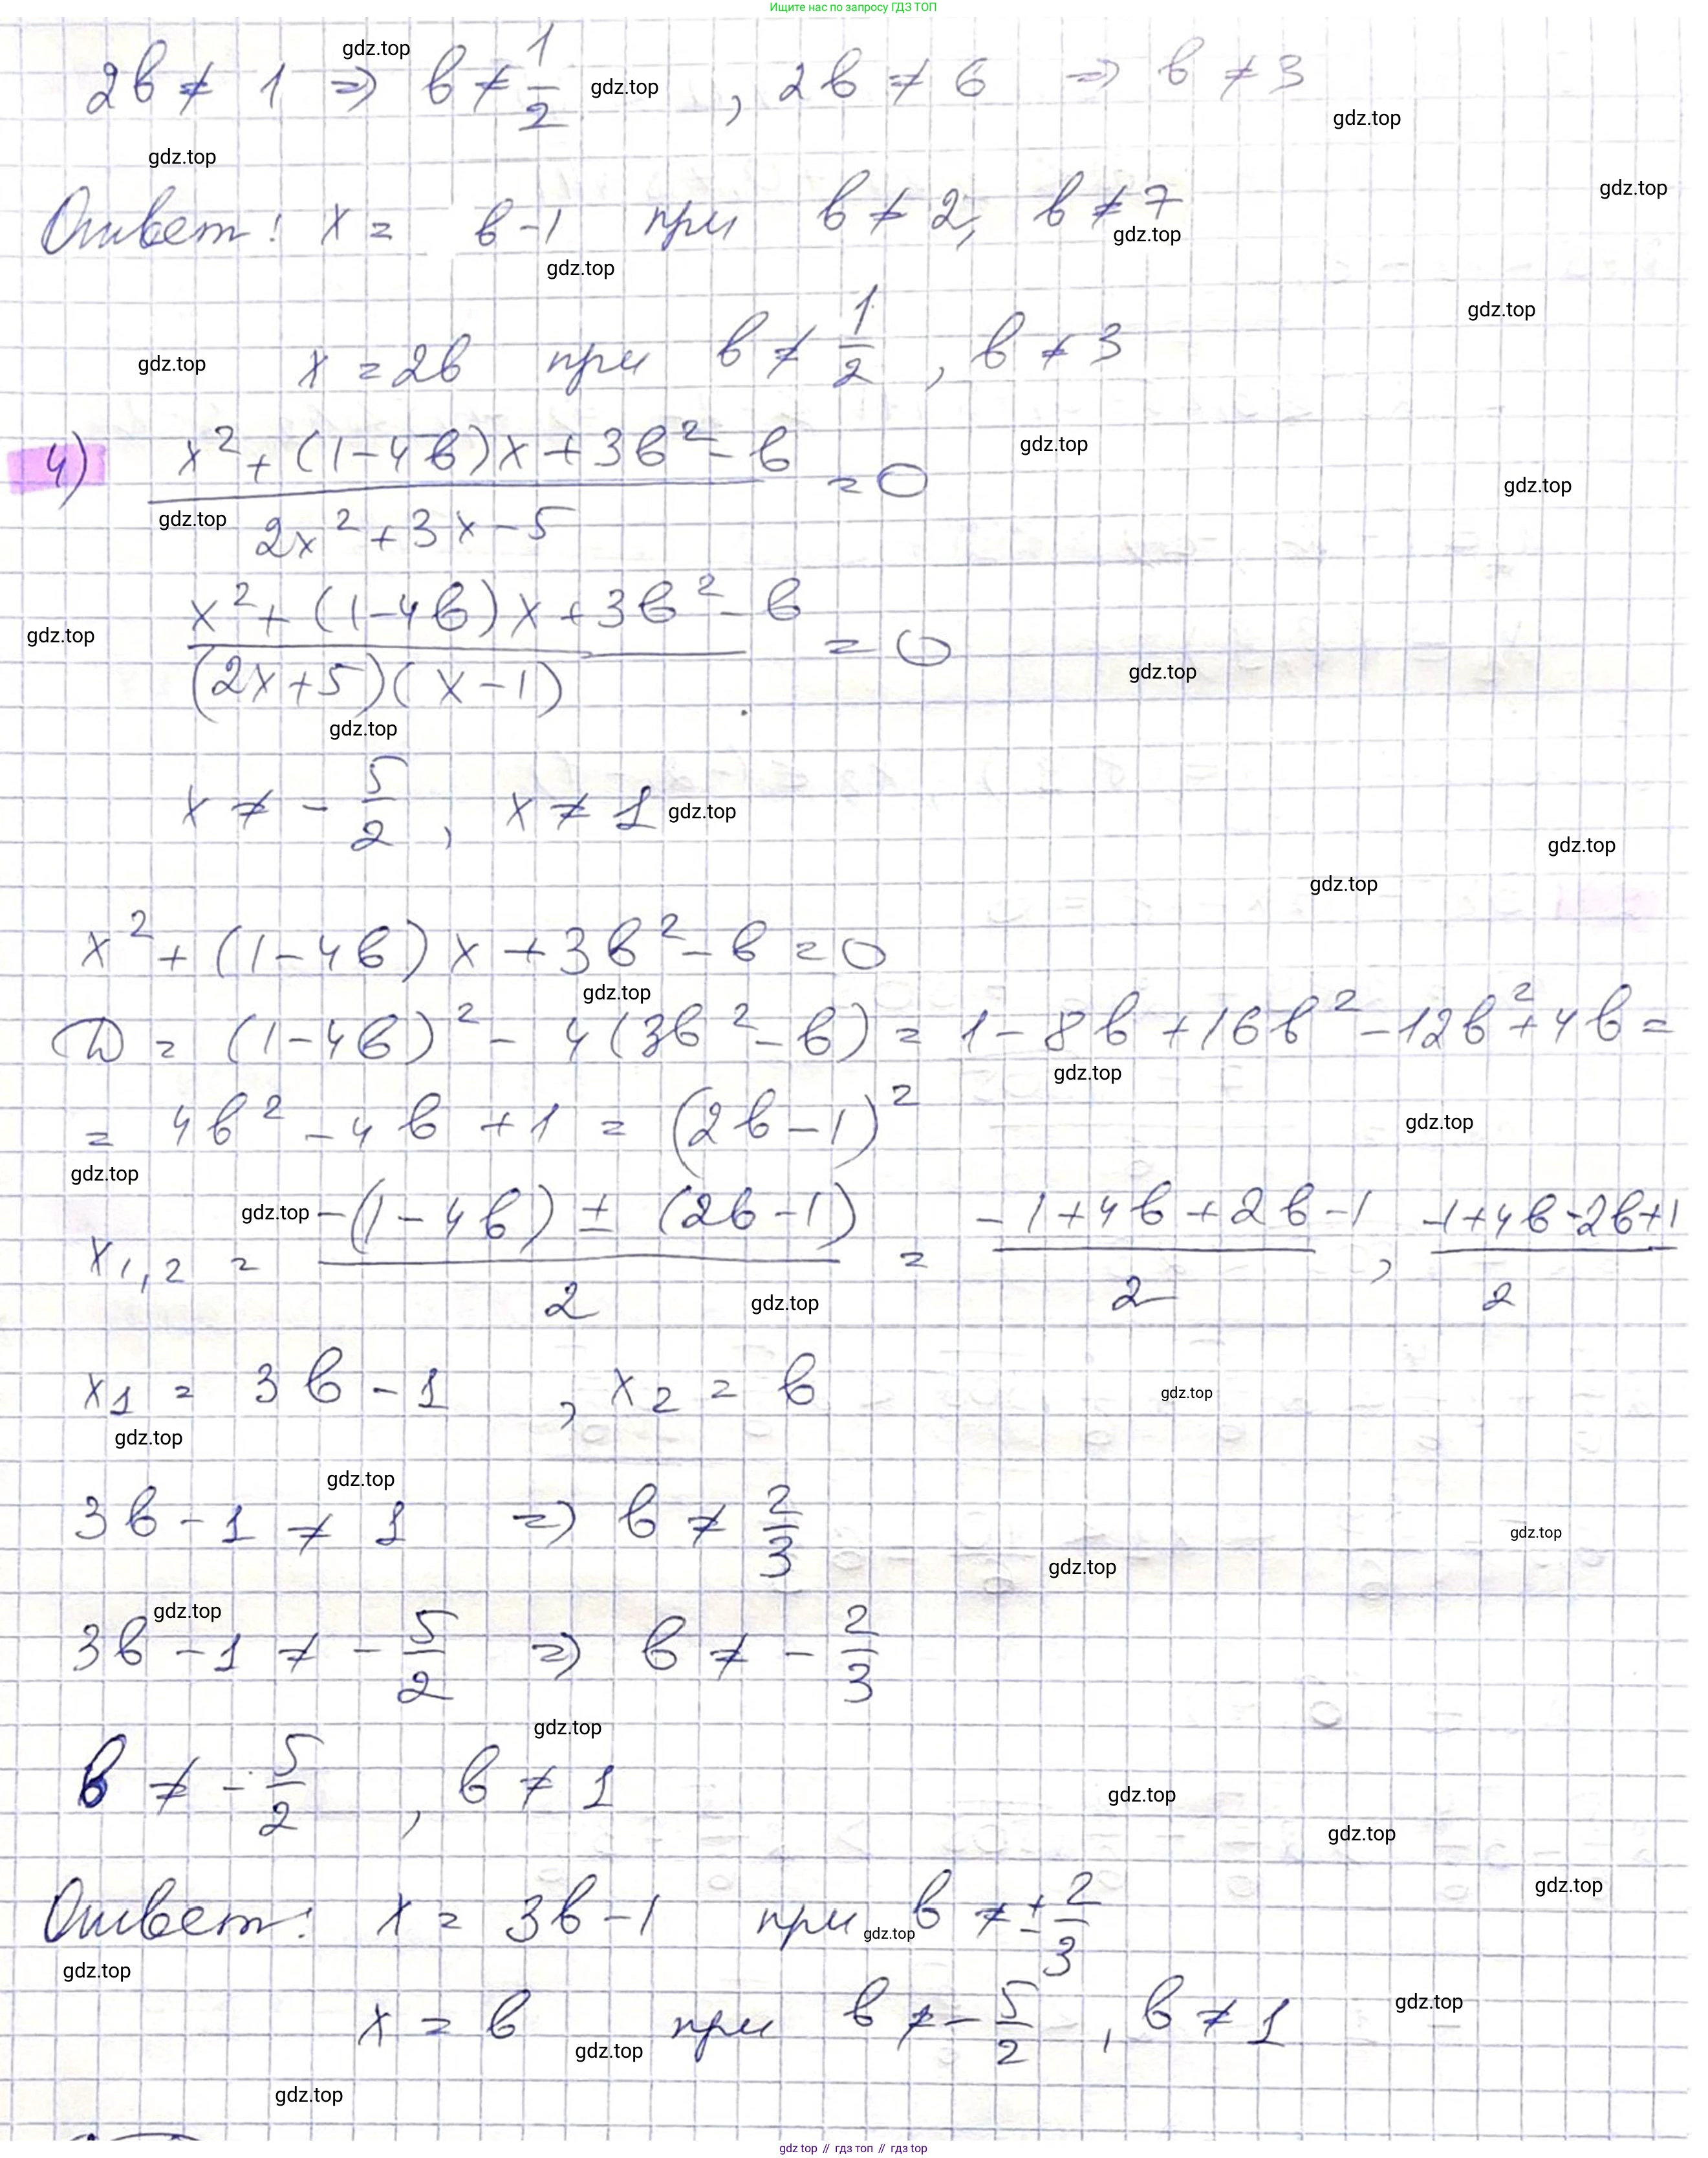 Ищите нас по запросу ГДЗ ТОП
gdz.top
2в ≠ 1 ⇒ в ≠ 1/2 gdz.top , 2в ≠ 6 ⇒ в ≠ 3
gdz.top
gdz.top
gdz.top
Ответ: x = в-1 при в ≠ 2, в ≠ 7
gdz.top
gdz.top
gdz.top
gdz.top x = 2в при в ≠ 1/2 , в ≠ 3
4) (x² + (1-4в)x + 3в² - в) / (2x² + 3x - 5) = 0
gdz.top
gdz.top
gdz.top
gdz.top (x² + (1-4в)x + 3в² - в) / ((2x+5)(x-1)) = 0
gdz.top
gdz.top
x ≠ - 5/2 , x ≠ 1 gdz.top
gdz.top
gdz.top
x² + (1-4в)x + 3в² - в = 0
gdz.top
D = (1-4в)² - 4(3в² - в) = 1 - 8в + 16в² - 12в² + 4в =
gdz.top
= 4в² - 4в + 1 = (2в-1)²
gdz.top
gdz.top
gdz.top
x1,2 = (-(1-4в) ± (2в-1)) / 2 = (-1+4в+2в-1) / 2 , (-1+4в-2в+1) / 2
gdz.top
x1 = 3в - 1 , x2 = в
gdz.top
gdz.top
gdz.top
3в - 1 ≠ 1 ⇒ в ≠ 2/3
gdz.top
gdz.top
gdz.top
3в - 1 ≠ - 5/2 ⇒ в ≠ - 2/3
gdz.top
в ≠ - 5/2 , в ≠ 1
gdz.top
gdz.top
gdz.top
Ответ: x = 3в-1 при в ≠ ± 2/3
gdz.top
gdz.top
gdz.top
x = в при в ≠ - 5/2 , в ≠ 1
gdz.top
gdz.top
gdz.top // гдз топ // гдз top